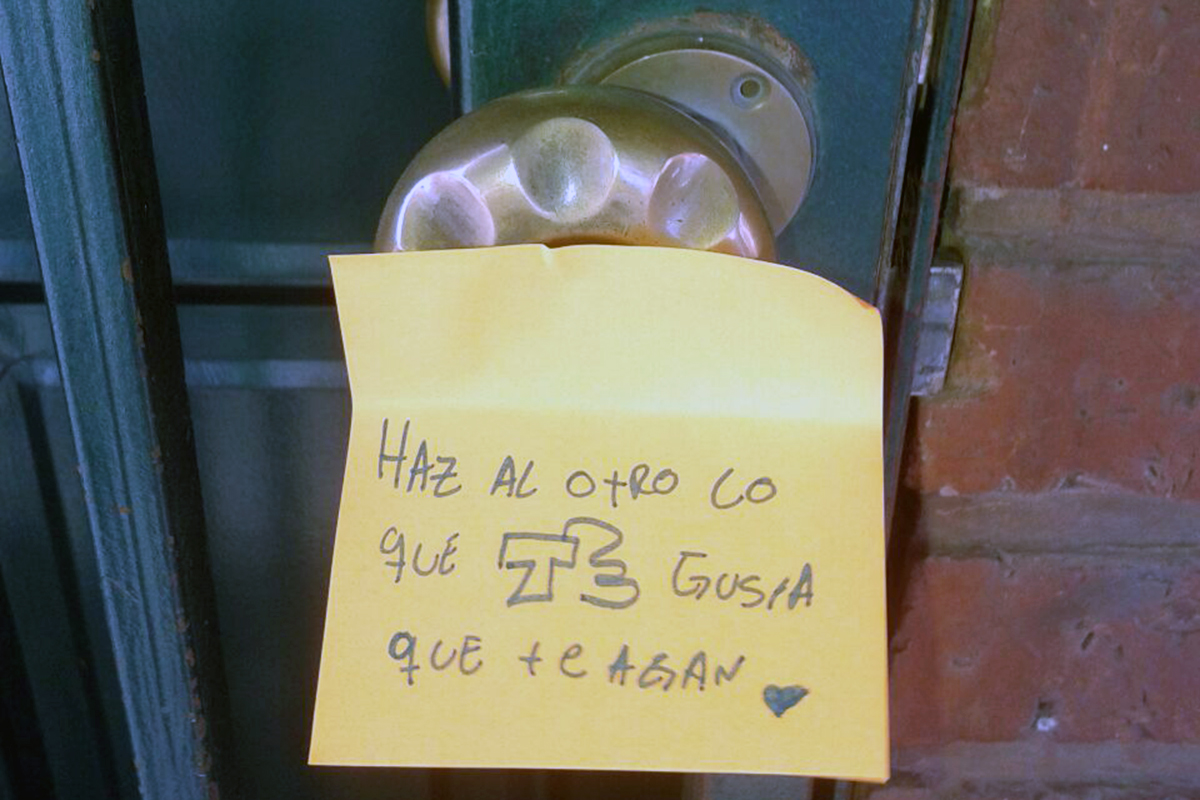 HAZ AL OTRO LO
QUE TE GUSTA
QUE te AGAN